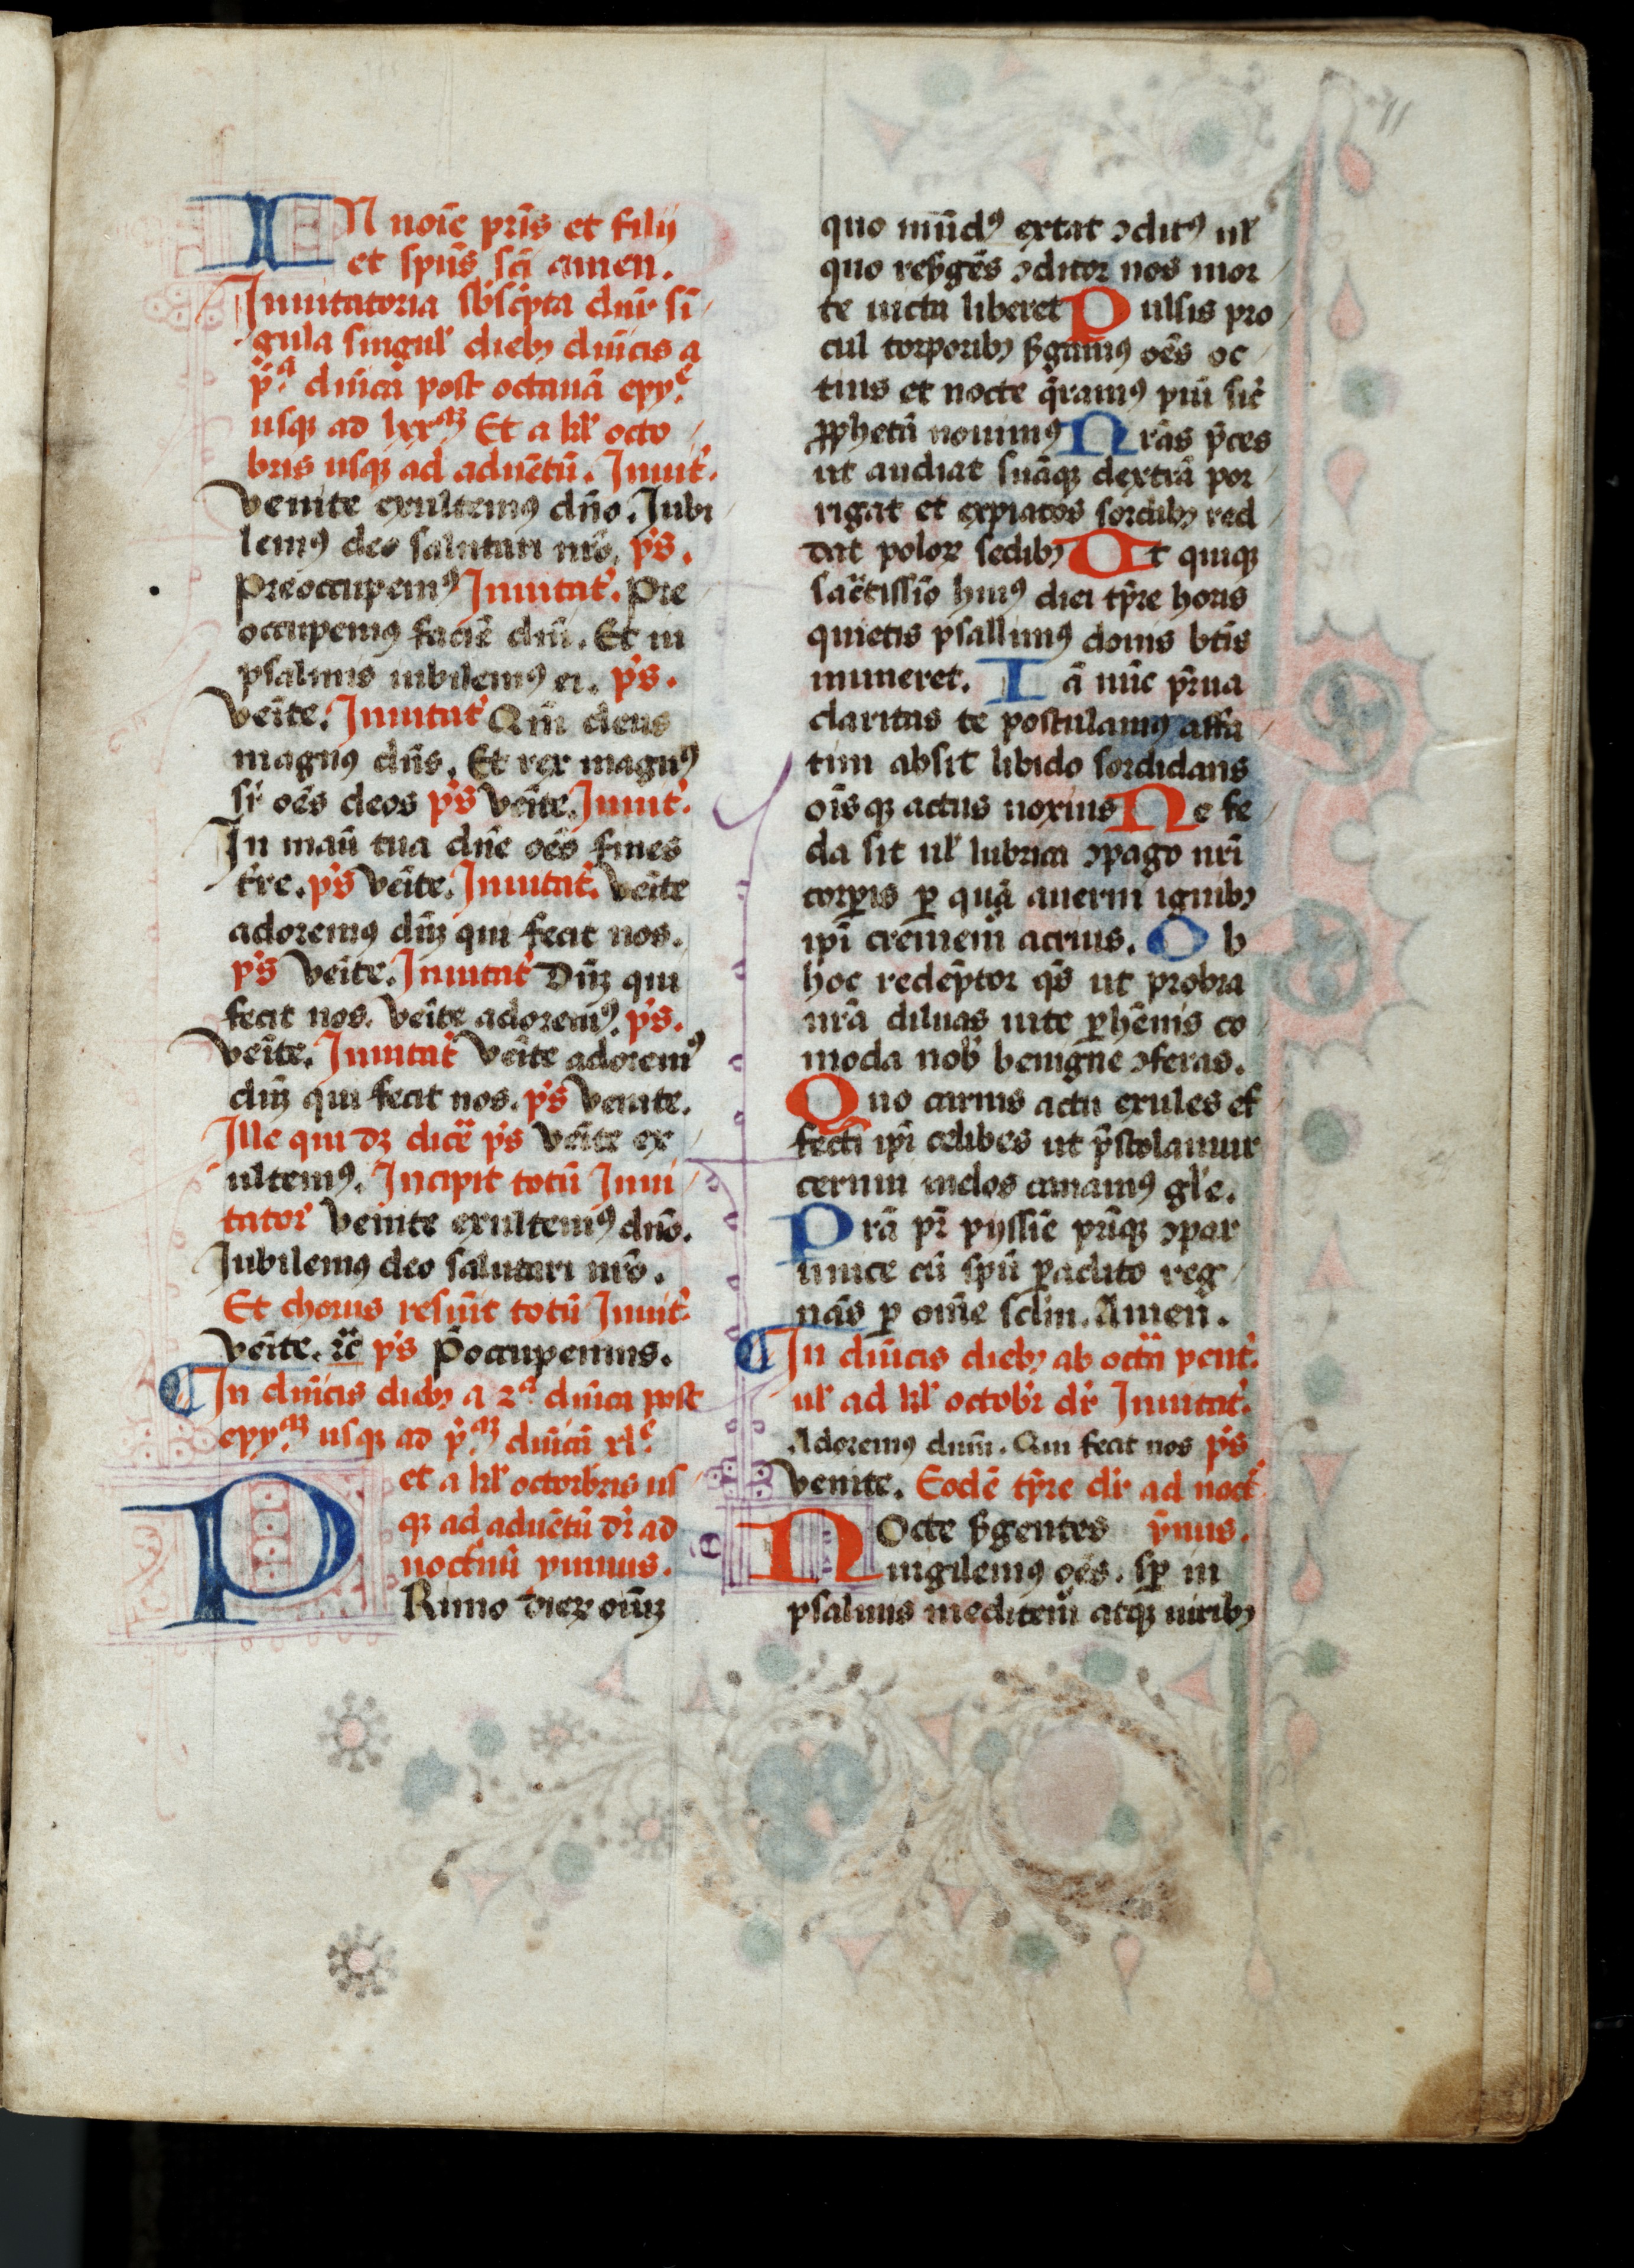 IN noīe pr̄is et filij
et spūs sc̄i amen.
Inuitatoria sb̄sc̄pta dn̄r si
gula singul' dieb; dn̄icis a
p̄.ª dn̄ica post octauā epy.ᵉ
usq; ad lxxᵃᵐ Et a kl' octo
bris usq; ad aduētū. Inuit'.
Venite exultemꝰ dn̄o. Iubi
lemꝰ deo salutari nr̄o. p̄s.
Preoccupemꝰ Inuitat'. Pre
occupemꝰ faciē dn̄i. Et in
psalmis iubilemꝰ ei. p̄s.
Veīte. Inuitat' Qm̄ deus
magnꝰ dn̄s. Et rex magnꝰ
sr̄ oēs deos p̄s Veīte. Inuit'.
In manū tua dn̄e oēs fines
t're. p̄s Veīte. Inuitat'. Veīte
adoremꝰ dn̄ꝫ qui fecit nos.
p̄s Veīte. Inuitat' Dn̄ꝫ qui
fecit nos. Veīte adoremꝰ. p̄s.
Veīte. Inuitat' Veīte adoremꝰ
dn̄ꝫ qui fecit nos. p̄s Venite.
Ille qui dꝫ dic̄e p̄s Veīte ex
ultemꝰ. Incipit totū Inui
tator' Venite exultemꝰ dn̄o.
Iubilemꝰ deo salutari nr̄o.
Et chorus resum̄t totū Inuit'.
Veīte. ⁊c̄ p̄s P̄occupemus.
¶ In dn̄icis dieb; a 2ª dn̄ica post
epy.ᵃᵐ usq; ad p̄.ᵃᵐ dn̄icā xl.ᵉ
et a kl' octorbris us
q; ad aduētū dr̄ ad
noct'nū ymnus.
PRimo dieꝝ oīm̄ꝫ
quo mūdꝰ extat ꝯditꝰ ul'
quo res̄gēs ꝯditor nos mor
te uicta liberet Pulsis pro
cul torporib; s̄gamꝰ oēs oc
tius et nocte q̄ramꝰ piū sic̄
ꝓphetā nouimꝰ Nr̄as p̄ces
ut audiat suāq; dextrā por
rigat et expiatos sordib; red
dat poloꝝ sedib; Ut quiq;
sac̄tissīo huiꝰ diei tp̄re horis
quietis psallimꝰ donis bt̄is
muneret. Iā nūc p̄rna
claritas te postulamꝰ affa
tim absit libido sordidans
oīsq; actus noxius Ne fe
da sit ul' lubrica ꝯpago nr̄i
corꝑis ꝑ quā auerni ignib;
ip̄i crememͬ acrius. Ob
hoc redēptor q̄s ut probra
nr̄a diluas uite ꝑhēnis co
moda nob̄ benigne ꝯferas.
Quo carnis actu exules ef
fecti ip̄i celibes ut p̄stolamur
cernui melos canamꝰ gl'e.
Pr̄a pr̄ pyssīe pr̄iq; ꝯpar
unice cū spū ꝑaclito reg
nās ꝑ om̄e sclm̄. Amen.
¶ In dn̄icis dieb; ab octā pent'.
ul' ad kl' octobr̄ dr̄ Inuitat'.
Adoremꝰ dnm̄. Qui fecit nos p̄s
Venite. Eodē tp̄re dr̄ ad noct'
NOcte s̄gentes ymus.
uigilemꝰ oēs. sꝑ in
psalmis meditemͬ atq; uirib;